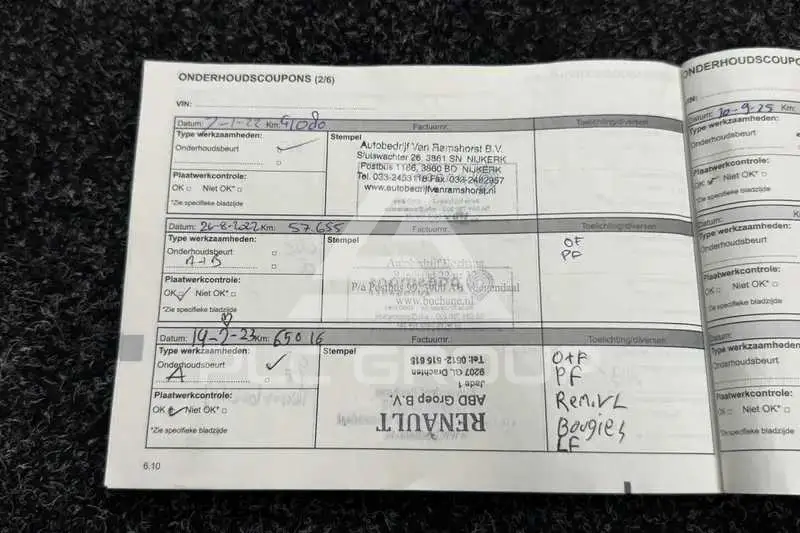 ONDERHOUDSCOUPONS (2/6)
VIN:
Datum: 7-1-22 Km: 41080 Factuurnr. Toelichting/diversen
Type werkzaamheden: Stempel
Onderhoudsbeurt
Autobedrijf Van Ramshorst B.V.
Sluiswachter 26, 3861 SN NIJKERK
Postbus 1166, 3860 BD NIJKERK
Tel. 033-2453118 Fax. 032-2462957
www.autobedrijfvanramshorst.nl
Plaatwerkcontrole:
OK Niet OK*
*Zie specifieke bladzijde
Datum: 26-8-2022 Km: 57.655 Factuurnr. Toelichting/diversen
Type werkzaamheden: Stempel
Onderhoudsbeurt
A+B
OF
PF
P/a Postbus
www.bochane.nl
Plaatwerkcontrole:
OK Niet OK*
*Zie specifieke bladzijde
Datum: 14-7-23 Km: 65016 Factuurnr. Toelichting/diversen
Type werkzaamheden: Stempel
Onderhoudsbeurt
A
RENAULT
ABD Groep B.V.
Jade 1
9207 GL Drachten
Tel: 0512-515 615
O+F
PF
Rem.VL
Bougies
LF
Plaatwerkcontrole:
OK Niet OK*
*Zie specifieke bladzijde
6.10
ONDERHOUDSCOUPO
VIN:
Datum: 30-9-25 Km:
Type werkzaamheden:
Onderhoudsbeurt
Plaatwerkcontrole:
OK Niet OK*
*Zie specifieke bladzijde
Datum:
Type werkzaamheden:
Onderhoudsbeurt
Plaatwerkcontrole:
OK Niet OK*
*Zie specifieke bladzijde
Datum:
Type werkzaamheden:
Onderhoudsbeurt
Plaatwerkcontrole:
OK Niet OK*
*Zie specifieke bladzijde